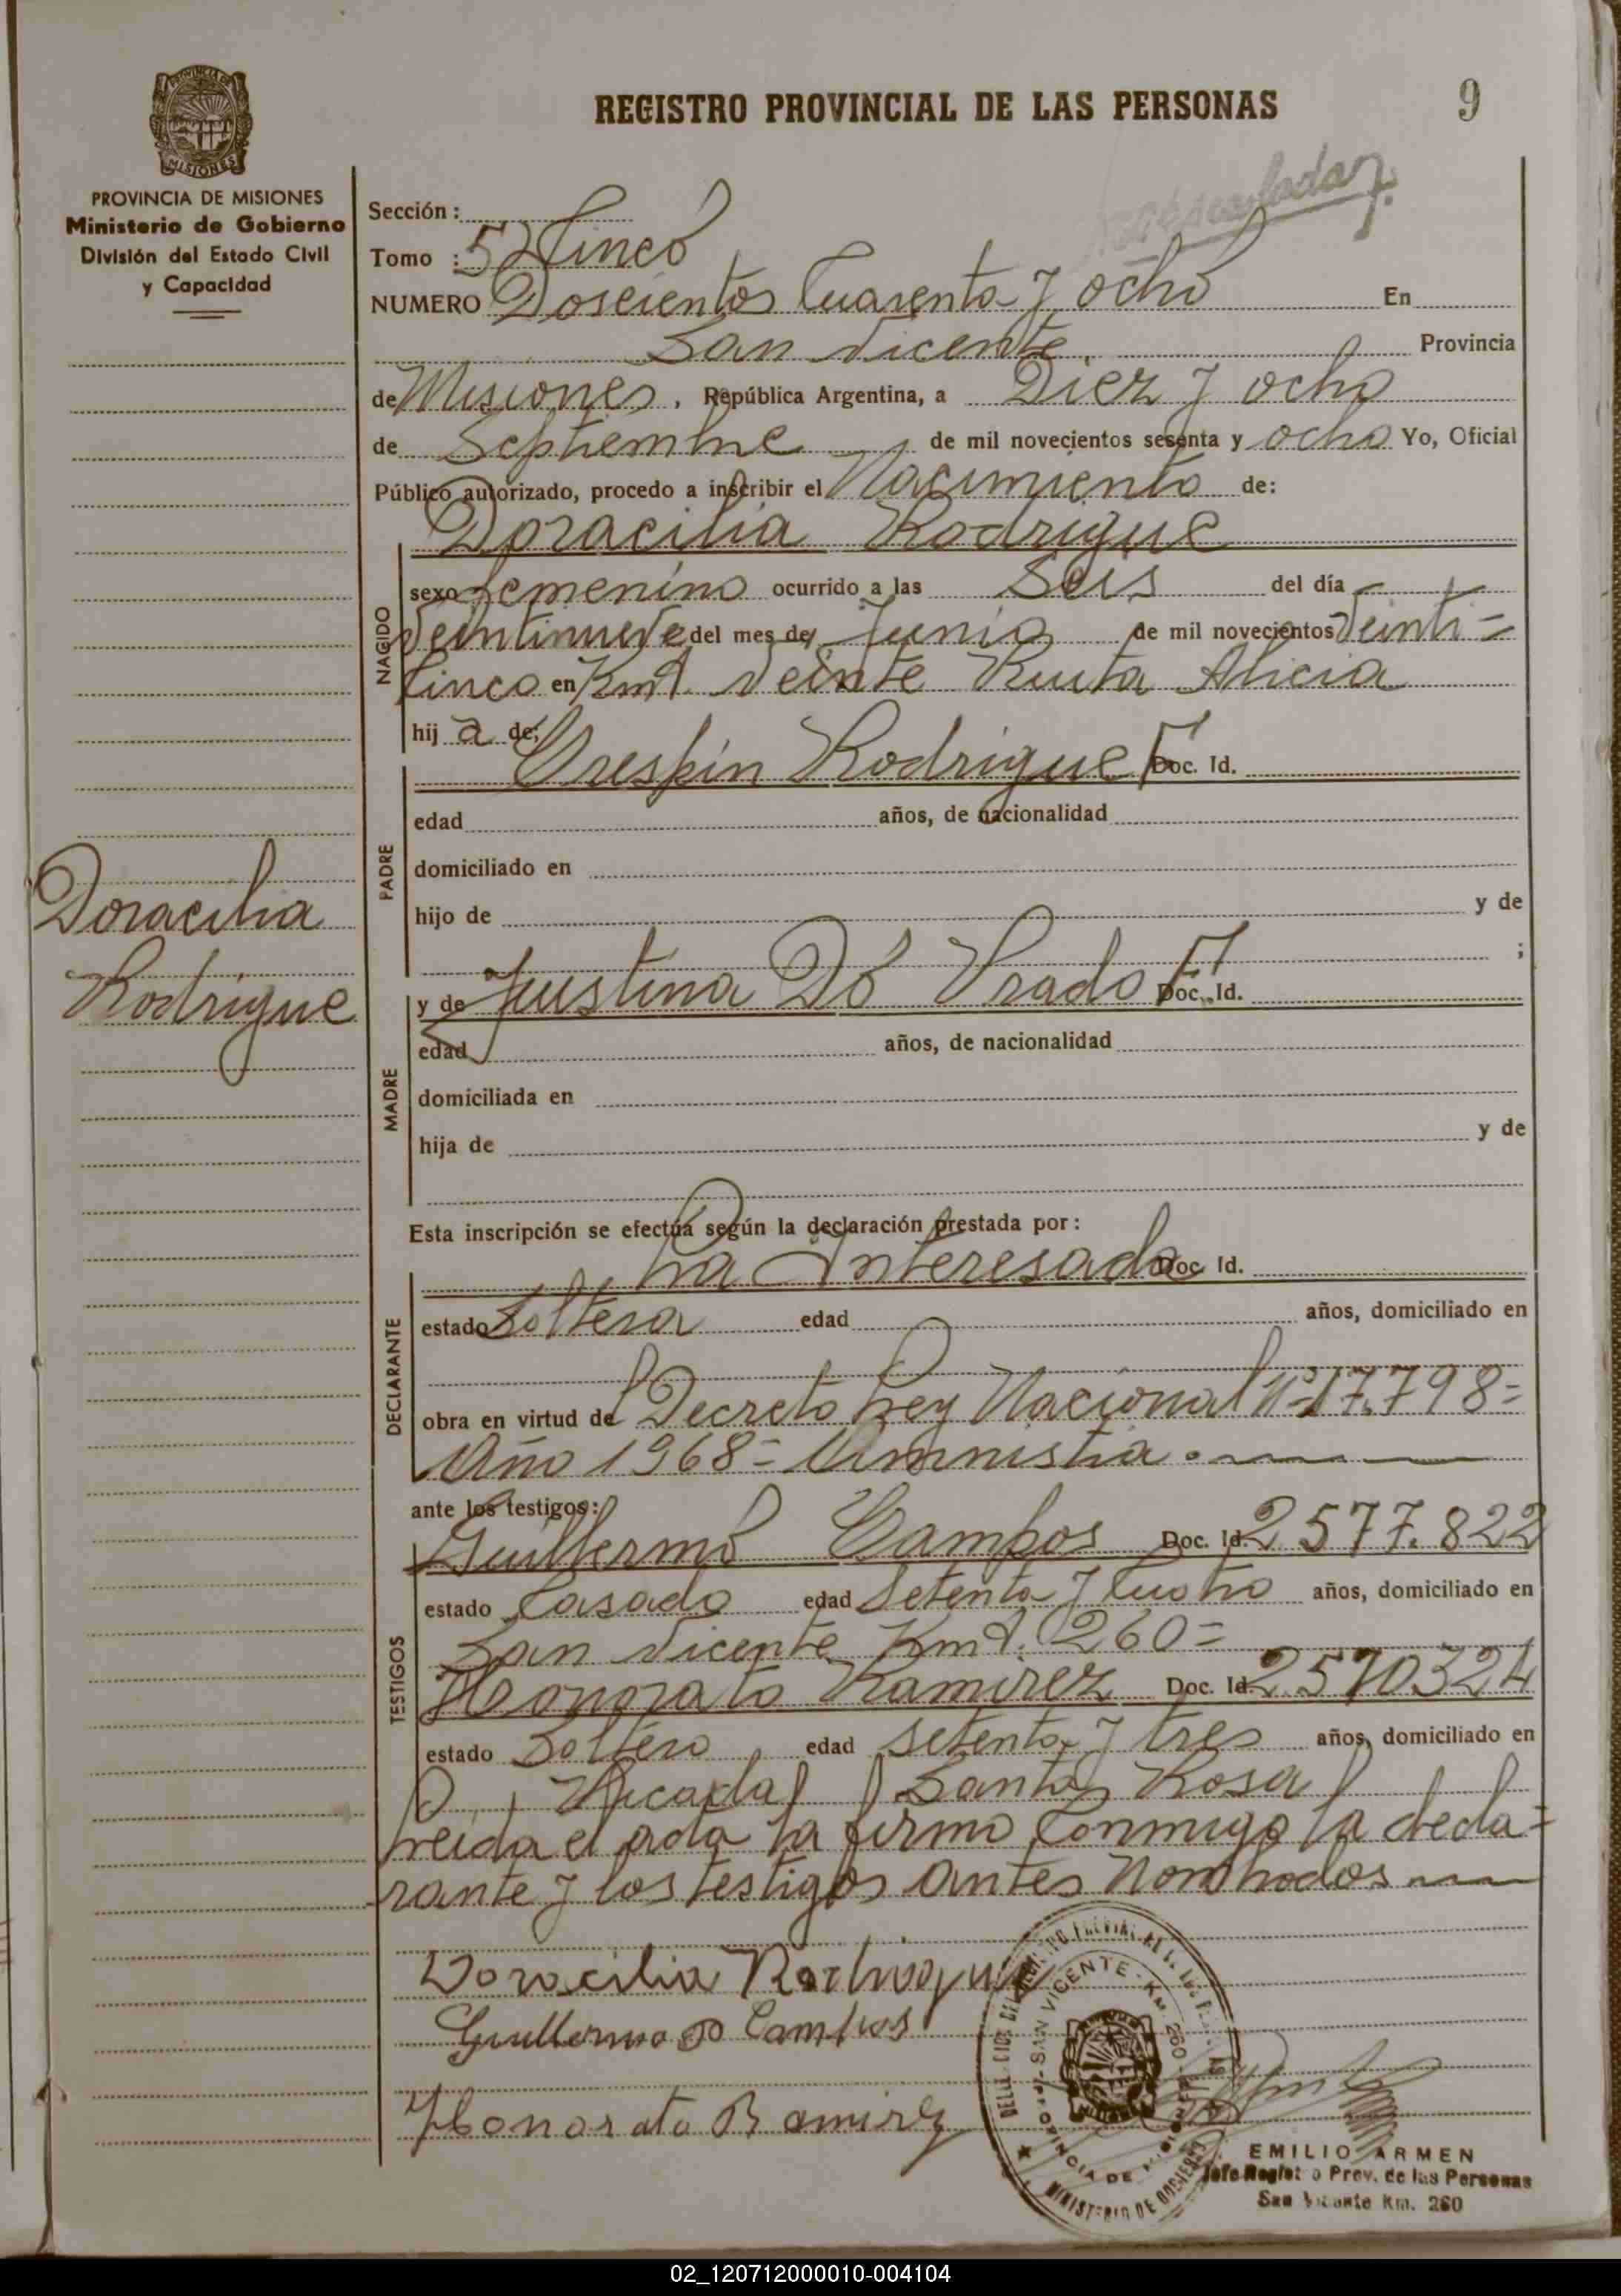 REGISTRO PROVINCIAL DE LAS PERSONAS
9
PROVINCIA DE
MISIONES
PROVINCIA DE MISIONES
Ministerio de Gobierno
División del Estado Civil
y Capacidad
Sección :
Tomo : 5 Cinco
NUMERO Doscientos Cuarenta y ocho En
San Vicente, Provincia
de Misiones, República Argentina, a Diez y ocho
de Septiembre de mil novecientos sesenta y ocho Yo, Oficial
Público autorizado, procedo a inscribir el Nacimiento de:
Doracilia Rodrigue
NACIDO
sexo femenino ocurrido a las Seis del día
Veintinueve del mes de Junio de mil novecientos Veinti=
Cinco en Kmt. Veinte Ruta Alicia
hij a de:
PADRE
Crespín Rodrigue F Doc. Id.
edad años, de nacionalidad
domiciliado en
hijo de y de
;
Doracilia
Rodrigue
MADRE
y de Justina Dó Prado F Doc. Id.
edad años, de nacionalidad
domiciliada en
hija de y de
Esta inscripción se efectúa según la declaración prestada por :
DECLARANTE
La Interesada Doc. Id.
estado Soltera edad años, domiciliado en
obra en virtud de Decreto Ley Nacional Nº 17.798=
Año 1968= Amnistia.
ante los testigos:
TESTIGOS
Guillermo Campos Doc. Id. 2577.822
estado Casado edad Setenta y Cuatro años, domiciliado en
San Vicente Kmt. 260=
Honorato Ramirez Doc. Id. 2570324
estado Soltero edad Setenta y tres años, domiciliado en
Picada Santa Rosa
Leida el acta la firma Conmigo la decla=
rante y los testigos antes Nombrados
Doracilia Rodrigue
Guillermo Campos
Honorato Ramirez
SAN VICENTE - KM 260
MINISTERIO DE GOBIERNO
EMILIO ARMEN
Jefe Registro Prov. de las Personas
San Vicente Km. 260
02_120712000010-004104